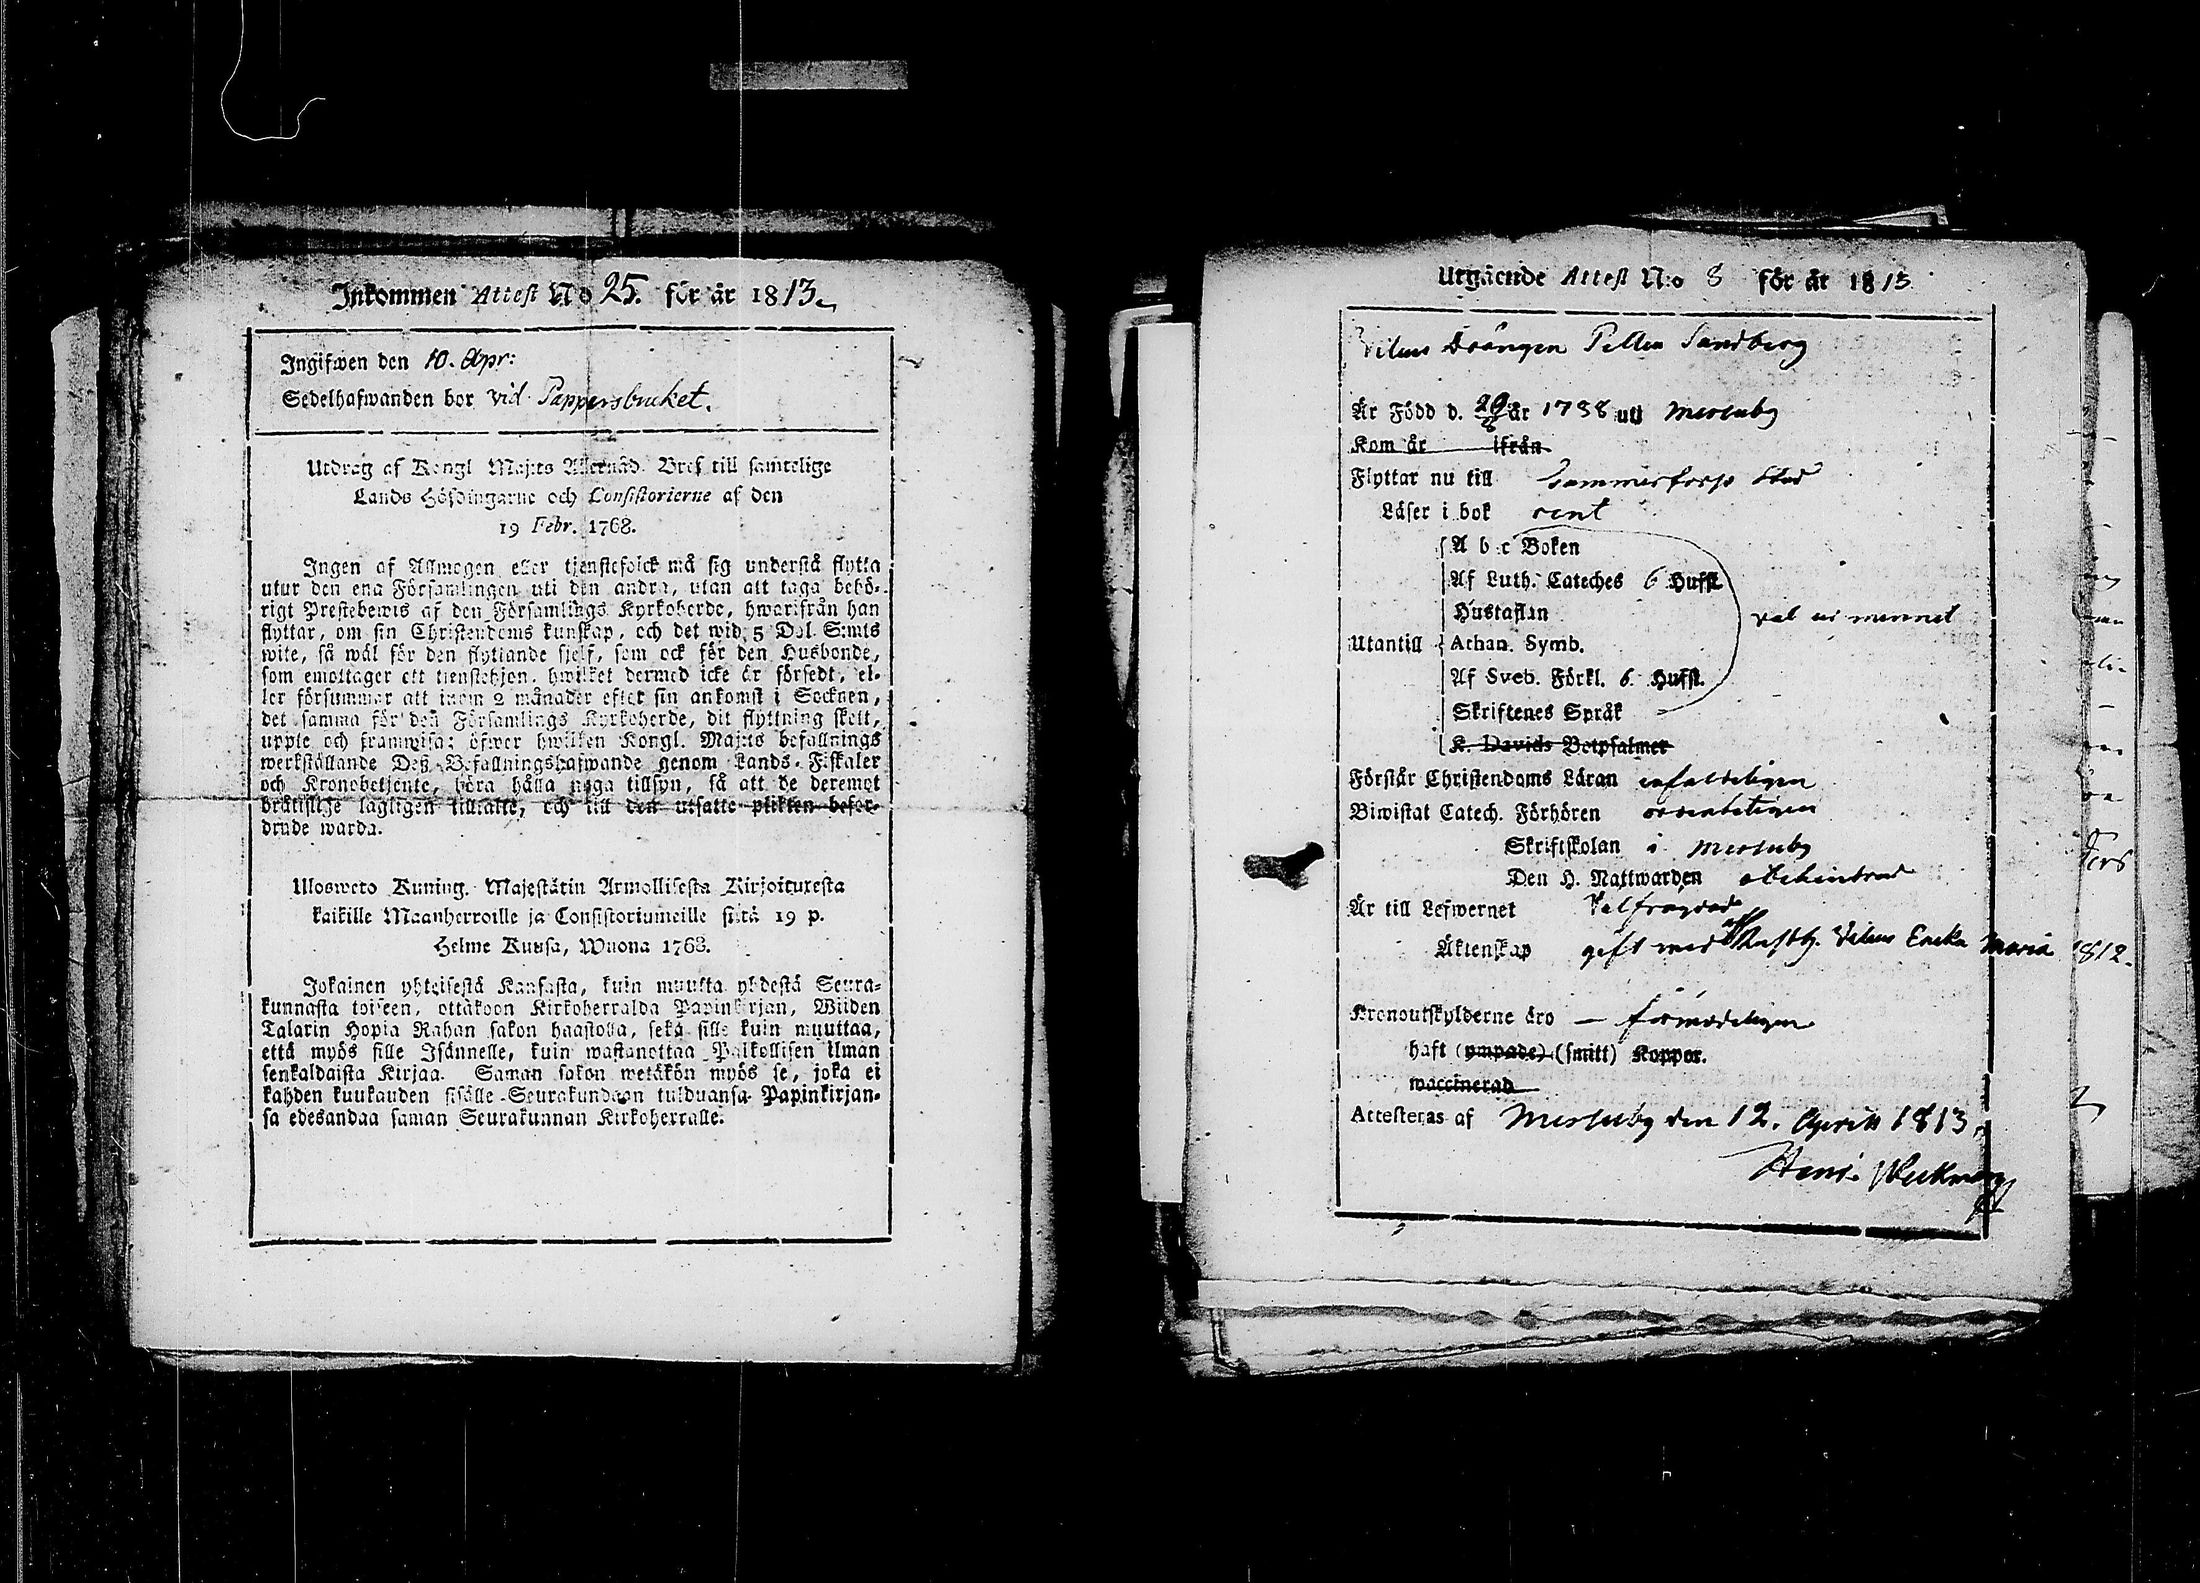 Inkommen Attest No 25. för år 1813.
Ingifwen den 10. Apr:
Sedelhafwanden bor vid Pappersbruket.
Utdrag af Kongl Maj:ts Allernåd. Bref till samtelige
Lands Höfdingarne och Consistorierne af den
19 Febr. 1768.
Ingen af Allmogen eller tjenstefolck må sig understå flytta
utur den ena Församlingen uti den andra, utan att taga behö-
rigt Prestebewis af den Församlings Kyrkoherde, hwarifrån han
flyttar, om sin Christendoms kunskap, och det wid 5 Dal. S:mts
wite, så wäl för den flyttande sjelf, som ock för den Husbonde,
som emottager ett tienstehjon, hwilket dermed icke är försedt, el-
ler försummar att inom 2 månader efter sin ankomst i Socknen,
det samma för den Församlings Kyrkoherde, dit flyttning skett,
uppte och framwisa; öfwer hwilken Kongl. Maj:ts befallnings
werkställande Deß Befallningshafwande genom Lands-Fiskaler
och Kronobetjente, böra hålla noga tillsyn, så att de deremot
brätslige lagligen tilltalte, och till den utsatte plikten befor-
drade warda.
Ulosweto Kuning. Majestätin Armollisesta Kirjoituxesta
kaikille Maanherroille ja Consistoriumeille siitä 19 p.
Helme Kuusa, Wuona 1768.
Jokainen yhteisestä Kansasta, kuin muutta yhdestä Seura-
kunnasta toiseen, ottakoon Kirkoherralda Papinkirjan, Wiiden
Talarin Hopia Rahan sakon haastolla, sekä sille kuin muuttaa,
että myös sille Isännelle, kuin wastanottaa Palkollisen ilman
senkaldaista Kirjaa. Saman sakon wetäkön myös se, joka ei
kahden kuukauden sisälle Seurakundaan tulduansa Papinkirjan-
sa edesandaa saman Seurakunnan Kirkoherralle.
Utgående Attest N:o 8 för år 1813
Drängen Petter Sandberg
Är Född d. 29/8 år 1788 uti Messuby
Kom år ifrån
Flyttar nu till Tammerfors Stad
Läser i bok rent
A b c Boken
Af Luth. Cateches 6 Hufst.
Hustaflan
Utantill Athan. Symb. väl ur minnet
Af Sveb. Förkl. 6 Hufst.
Skriftenes Språk
K. Davids Botpsalmer
Förstår Christendoms Läran enfaldeligen
Biwistat Catech. Förhören ordenteligen
Skriftskolan i Messuby
Den H. Nattwarden obehindrad
Är till Lefwernet Välfrägdad
Äktenskap gift med Maria 1812.
Kronoutskylderne äro — förmodeligen
haft (ympade) (smitt) Koppor.
waccinerad
Attesteras af Messuby den 12. April 1813.